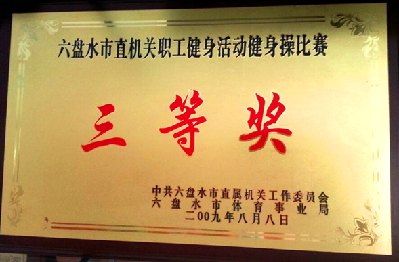 六盘水市直机关职工健身活动健身操比赛
三等奖
中共六盘水市直属机关工作委员会
六盘水市体育事业局
二00九年八月八日